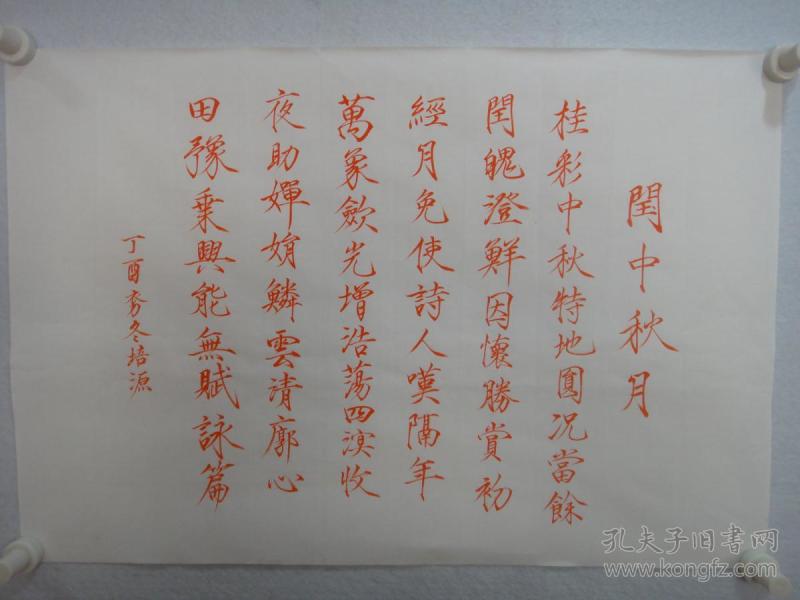 閏中秋月
桂彩中秋特地圓况當餘
閏魄澄鮮因懷勝賞初
經月免使詩人嘆隔年
萬象歛光增浩蕩四溟收
夜助嬋娟鱗雲清廓心
田豫乘興能無賦詠篇
丁酉冬培源
孔夫子旧书网
www.kongfz.com